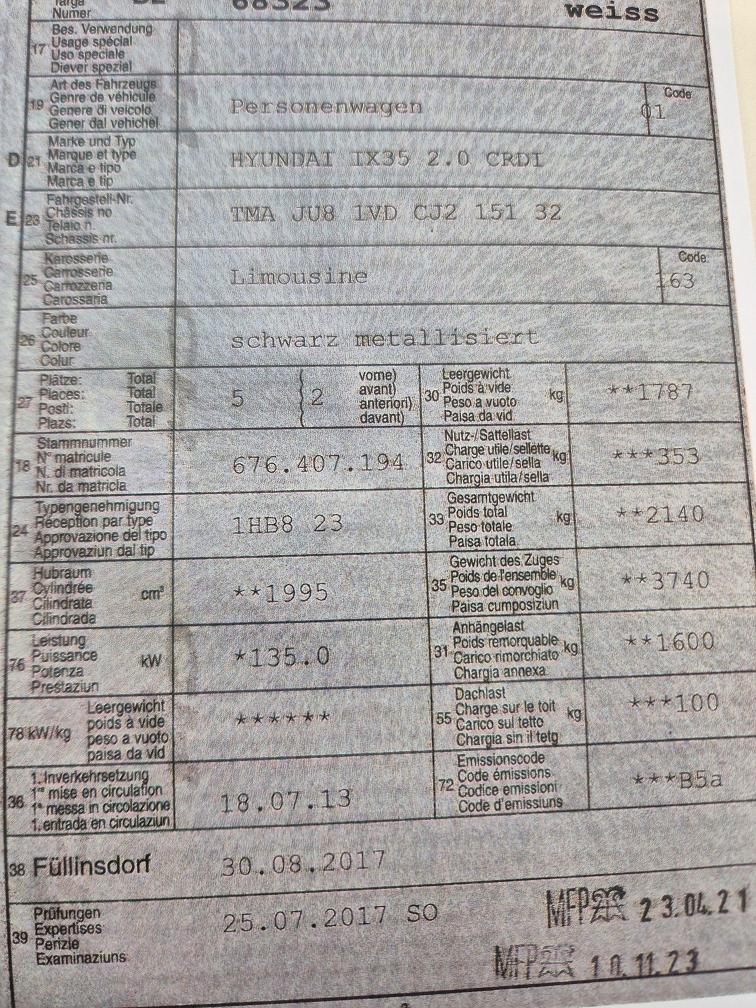 Targa
Numer
weiss
17 Bes. Verwendung
Usage spécial
Uso speciale
Diever spezial
19 Art des Fahrzeugs
Genre de véhicule
Genere di veicolo
Gener dal vehichel
Personenwagen
Code
01
D 21 Marke und Typ
Marque et type
Marca e tipo
Marca e tip
HYUNDAI IX35 2.0 CRDI
E 23 Fahrgestell-Nr.
Châssis no
Telaio n.
Schassis-nr.
TMA JU8 1VD CJ2 151 32
25 Karosserie
Carrosserie
Carrozzeria
Carossaria
Limousine
Code
163
26 Farbe
Couleur
Colore
Colur
schwarz metallisiert
27 Plätze: Total
Places: Total
Posti: Totale
Plazs: Total
5 2
vorne)
avant)
anteriori)
davant)
30 Leergewicht
Poids à vide
Peso a vuoto
Paisa da vid
kg
**1787
18 Stammnummer
N° matricule
N. di matricola
Nr. da matricla
676.407.194
32 Nutz-/Sattellast
Charge utile/sellette
Carico utile/sella
Chargia utila/sella
kg
***353
24 Typengenehmigung
Réception par type
Approvazione del tipo
Approvaziun dal tip
1HB8 23
33 Gesamtgewicht
Poids total
Peso totale
Paisa totala
kg
**2140
37 Hubraum
Cylindrée
Cilindrata
Cilindrada
cm³
**1995
35 Gewicht des Zuges
Poids de l'ensemble
Peso del convoglio
Paisa cumposiziun
kg
**3740
76 Leistung
Puissance
Potenza
Prestaziun
kW
*135.0
31 Anhängelast
Poids remorquable
Carico rimorchiato
Chargia annexa
kg
**1600
78 kW/kg
Leergewicht
poids à vide
peso a vuoto
paisa da vid
******
55 Dachlast
Charge sur le toit
Carico sul tetto
Chargia sin il tetg
kg
***100
36 1. Inverkehrsetzung
1re mise en circulation
1a messa in circolazione
1. entrada en circulaziun
18.07.13
72 Emissionscode
Code émissions
Codice emissioni
Code d'emissiuns
***B5a
38 Füllinsdorf
30.08.2017
39 Prüfungen
Expertises
Perizie
Examinaziuns
25.07.2017 SO
MFP 23.04.21
MFP 10.11.23